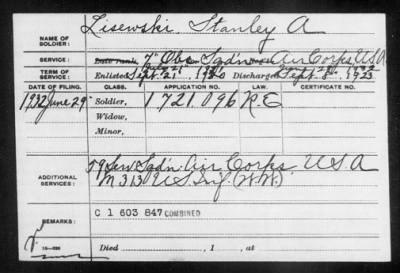 NAME OF SOLDIER: Lisewski, Stanley A
SERVICE: Late Rank, 7" Obs Sqd'n Air Corps USA
TERM OF SERVICE: Enlisted Sept. 21, 1920 Discharged Sept. 8, 1923
DATE OF FILING. CLASS. APPLICATION NO. LAW. CERTIFICATE NO.
1932 June 29 Soldier, 1721096 R.E
Widow,
Minor,
ADDITIONAL SERVICES: 59 Serv Sqd'n Air Corps, USA
M 313 US Inf. (W.W.)
REMARKS: C 1 603 847 COMBINED
Died , 1 , at